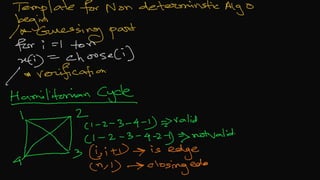 Template for Non deterministic Algo
begin
* Guessing part
for i = 1 to n
x(i) = choose(i)
* verification
Hamiltonian Cycle
1 2
(1-2-3-4-1) → valid
(1-2-3-4-2-1) → not valid
4 3
(i, i+1) → is edge
(n, 1) → closing